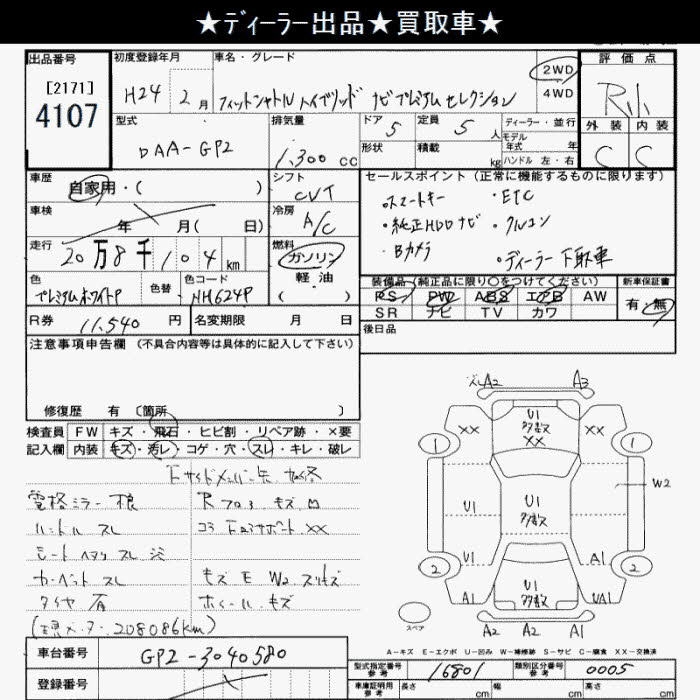 ★ディーラー出品★買取車★
出品番号
[2171]
4107
初度登録年月
H24 2月
車名・グレード
フィットシャトル ハイブリッド ナビプレミアムセレクション
2WD
4WD
評価点
外装 内装
C C
型式
DAA-GP2
排気量
1,300 cc
ドア 5
形状
定員 5 人
積載 kg
ディーラー・並行
モデル
年式 年
ハンドル 左・右
車歴
自家用・( )
シフト
CVT
セールスポイント (正常に機能するものに限ります)
・スマートキー ・ETC
・純正HDDナビ ・クルコン
・Bカメラ ・ディーラー下取車
車検
年 月( 日)
冷房
A/C
走行
20万8千104km
燃料
ガソリン
軽油
( )
色
プレミアムホワイトP
色替
色コード
NH624P
装備品 (純正品に限り○をつけてください)
PS PW ABS エアB AW
SR ナビ TV カワ
新車保証書
有・無
R券 11,540 円
名変期限 月 日
後日品
注意事項申告欄 (不具合内容等は具体的に記入して下さい)
修復歴 有 〔箇所 〕
検査員 FW キズ・飛石・ヒビ割・リペア跡・×要
記入欄 内装 キズ・汚レ・コゲ・穴・スレ・キレ・破レ
電格ミラー
ハンドル スレ
シート スレ
カーペット スレ
タイヤ 有
208086km)
コア サポート ××
キズ E W2 スリキズ
ホイール キズ
A2 A3
U1
多数
××
×× ××
1 1
W2
U1
U1
多数
U1 A1
2 2
U1
多数
A1 UA1
A2 A2 A1
スペア
A-キズ E-エクボ U-凹み W-補修跡 S-サビ C-腐食 XX-交換済
車台番号
GP2-3040580
型式指定番号
参考
16801
類別区分番号
参考
0005
登録番号
車庫証明用
参考
長さ cm 幅 cm 高さ cm